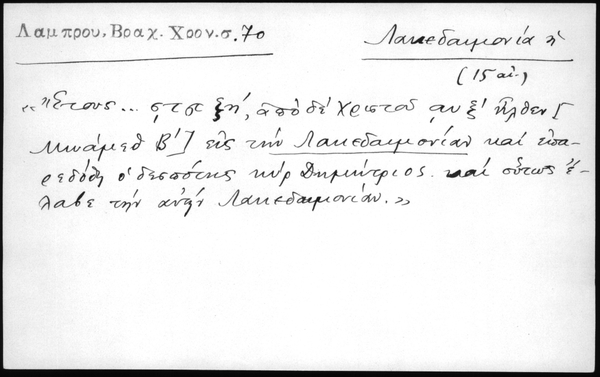 Λαμπρου, Βραχ. Χρον. σ. 70
Λακεδαιμονία ἡ
(15 αἰ.)
«Ἔτους... ςτσ ξή, ἀπὸ δὲ Χριστοῦ αυξ' ἦλθεν [
Μωάμεθ Β'] εἰς τὴν Λακεδαιμονίαν καὶ ἐπα-
ρεδόθη ὁ δεσπότης κὺρ Δημήτριος. καὶ οὕτως ἔ-
λαβε τὴν αὐτὴν Λακεδαιμονίαν.»